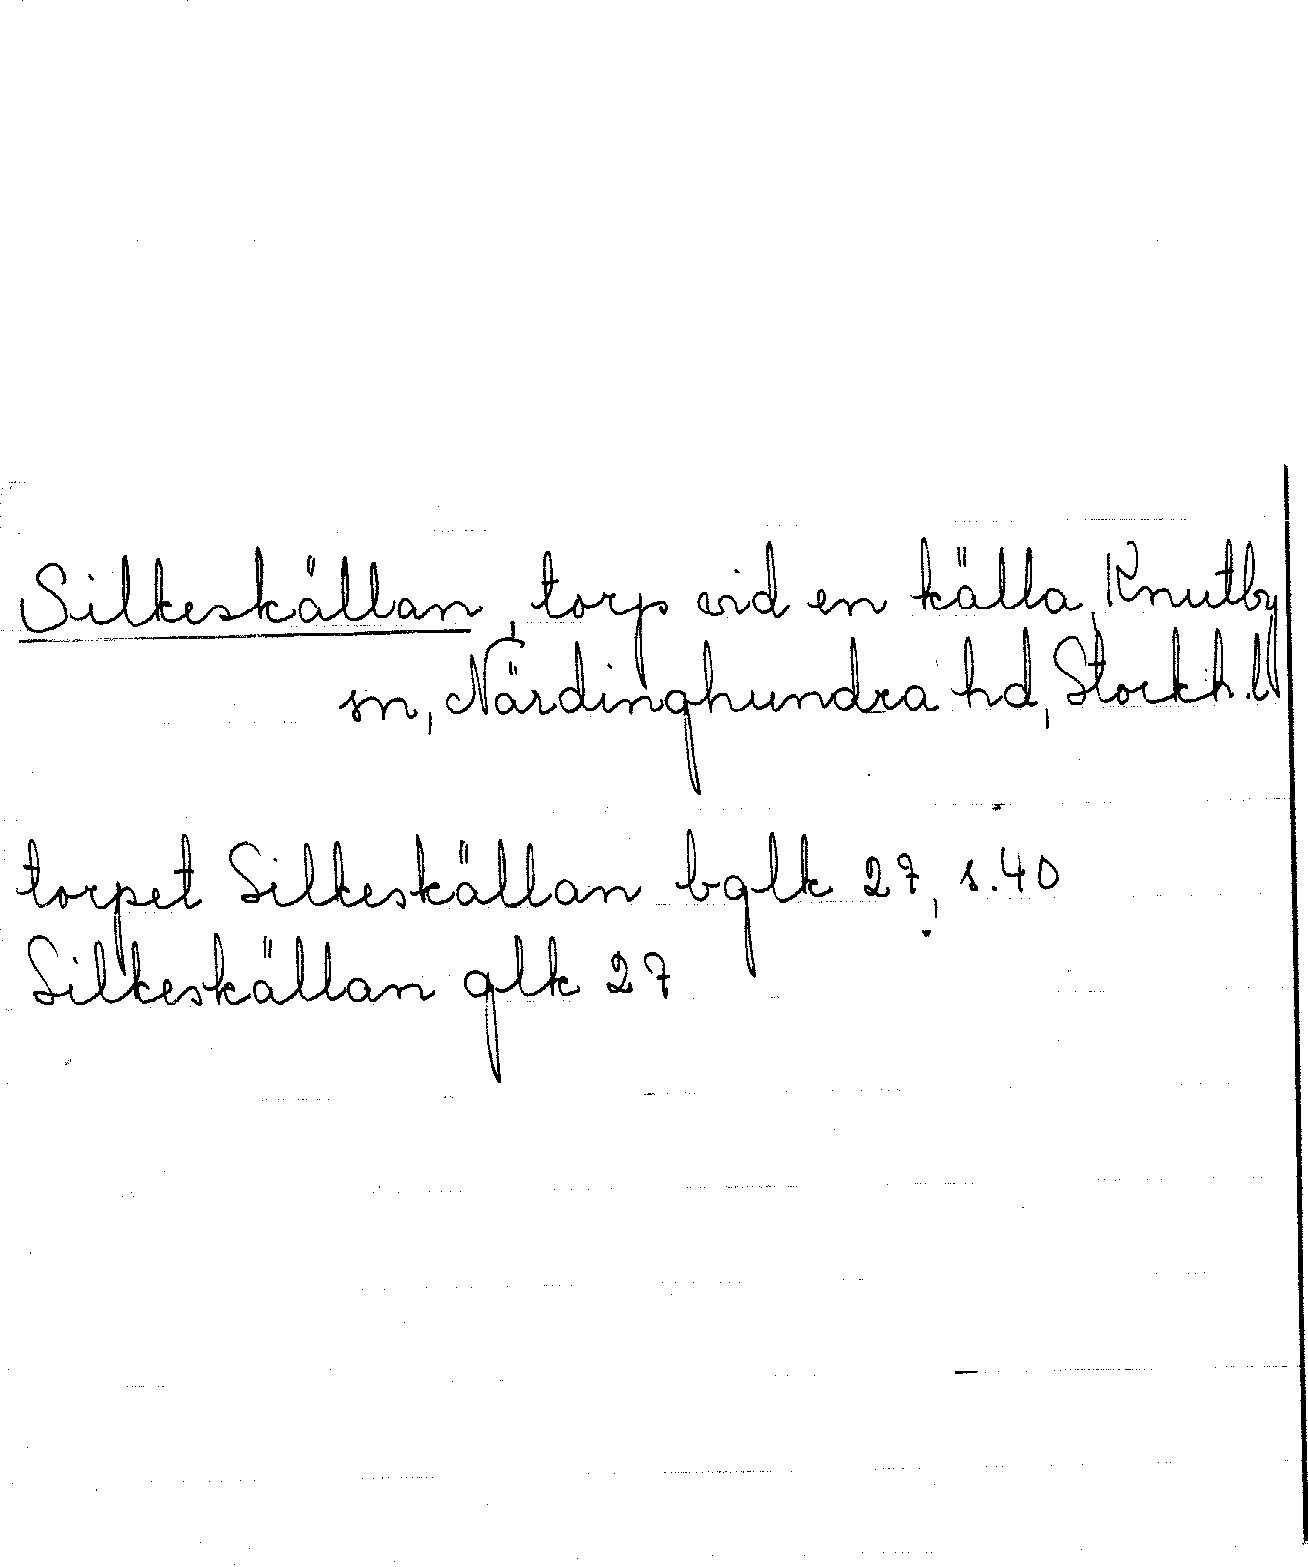 Silkeskällan, torp vid en källa, Knutby
sn, Närdinghundra hd, Stockh. l
torpet Silkeskällan bglk 27, s. 40
Silkeskällan glk 27